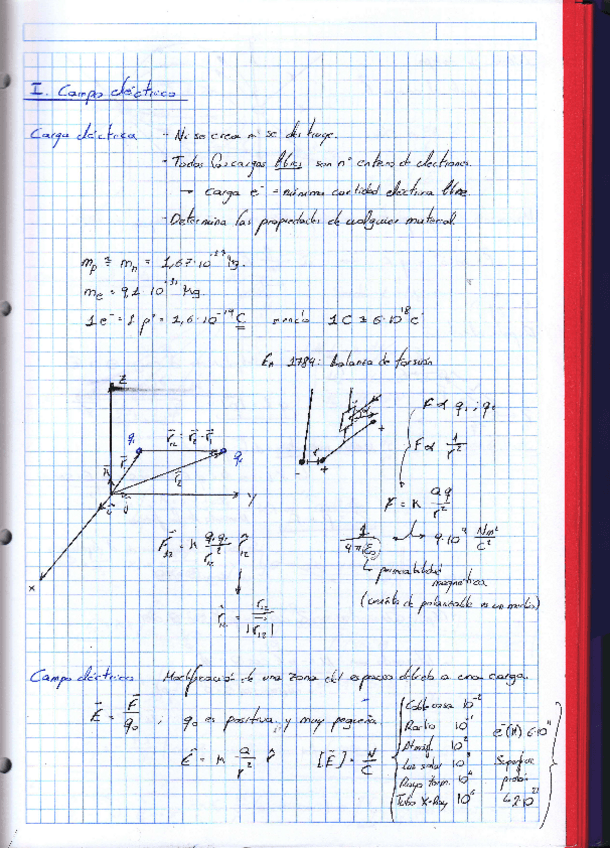 I. Campo eléctrico
Carga eléctrica - Ni se crea ni se destruye.
- Todas las cargas libres son nº entero de electrones.
→ carga e⁻ = mínima cantidad eléctrica libre.
- Determina las propiedades de cualquier material.
m_p ≅ m_n = 1,67·10⁻²⁷ kg.
m_e = 9,1·10⁻³¹ kg.
1 e⁻ = 1 p⁺ = 1,6·10⁻¹⁹ C siendo 1 C ≅ 6·10¹⁸ e⁻
En 1784: Balanza de torsión
z
r⃗₁₂ = r⃗₂ - r⃗₁
q₁
q₂
r⃗₁
r⃗₂
y
x
- r +
+
F ∝ q₁ ; q₂
F ∝ 1/r²
F = K Qq/r²
F⃗₁₂ = K q₁q₂/r₁₂² r̂₁₂
1/4π(ε₀) → 9·10⁹ Nm²/C²
↳ permeabilidad
magnética
(cuánto de polarizable es un medio)
r̂₁₂ = r⃗₁₂/|r⃗₁₂|
Campo eléctrico Modificación de una zona del espacio debido a una carga.
E⃗ = F⃗/q₀ ; q₀ es positiva y muy pequeña.
E⃗ = K Q/r² r̂ [E⃗] = N/C
Cable casa 10⁻²
Radio 10⁻¹
Atmósf. 10²
Luz solar 10³
Rayo torm. 10⁴
Tubo X-Ray 10⁶
e⁻(H) 6·10¹¹
Superficie
protón
↳ 2·10²¹